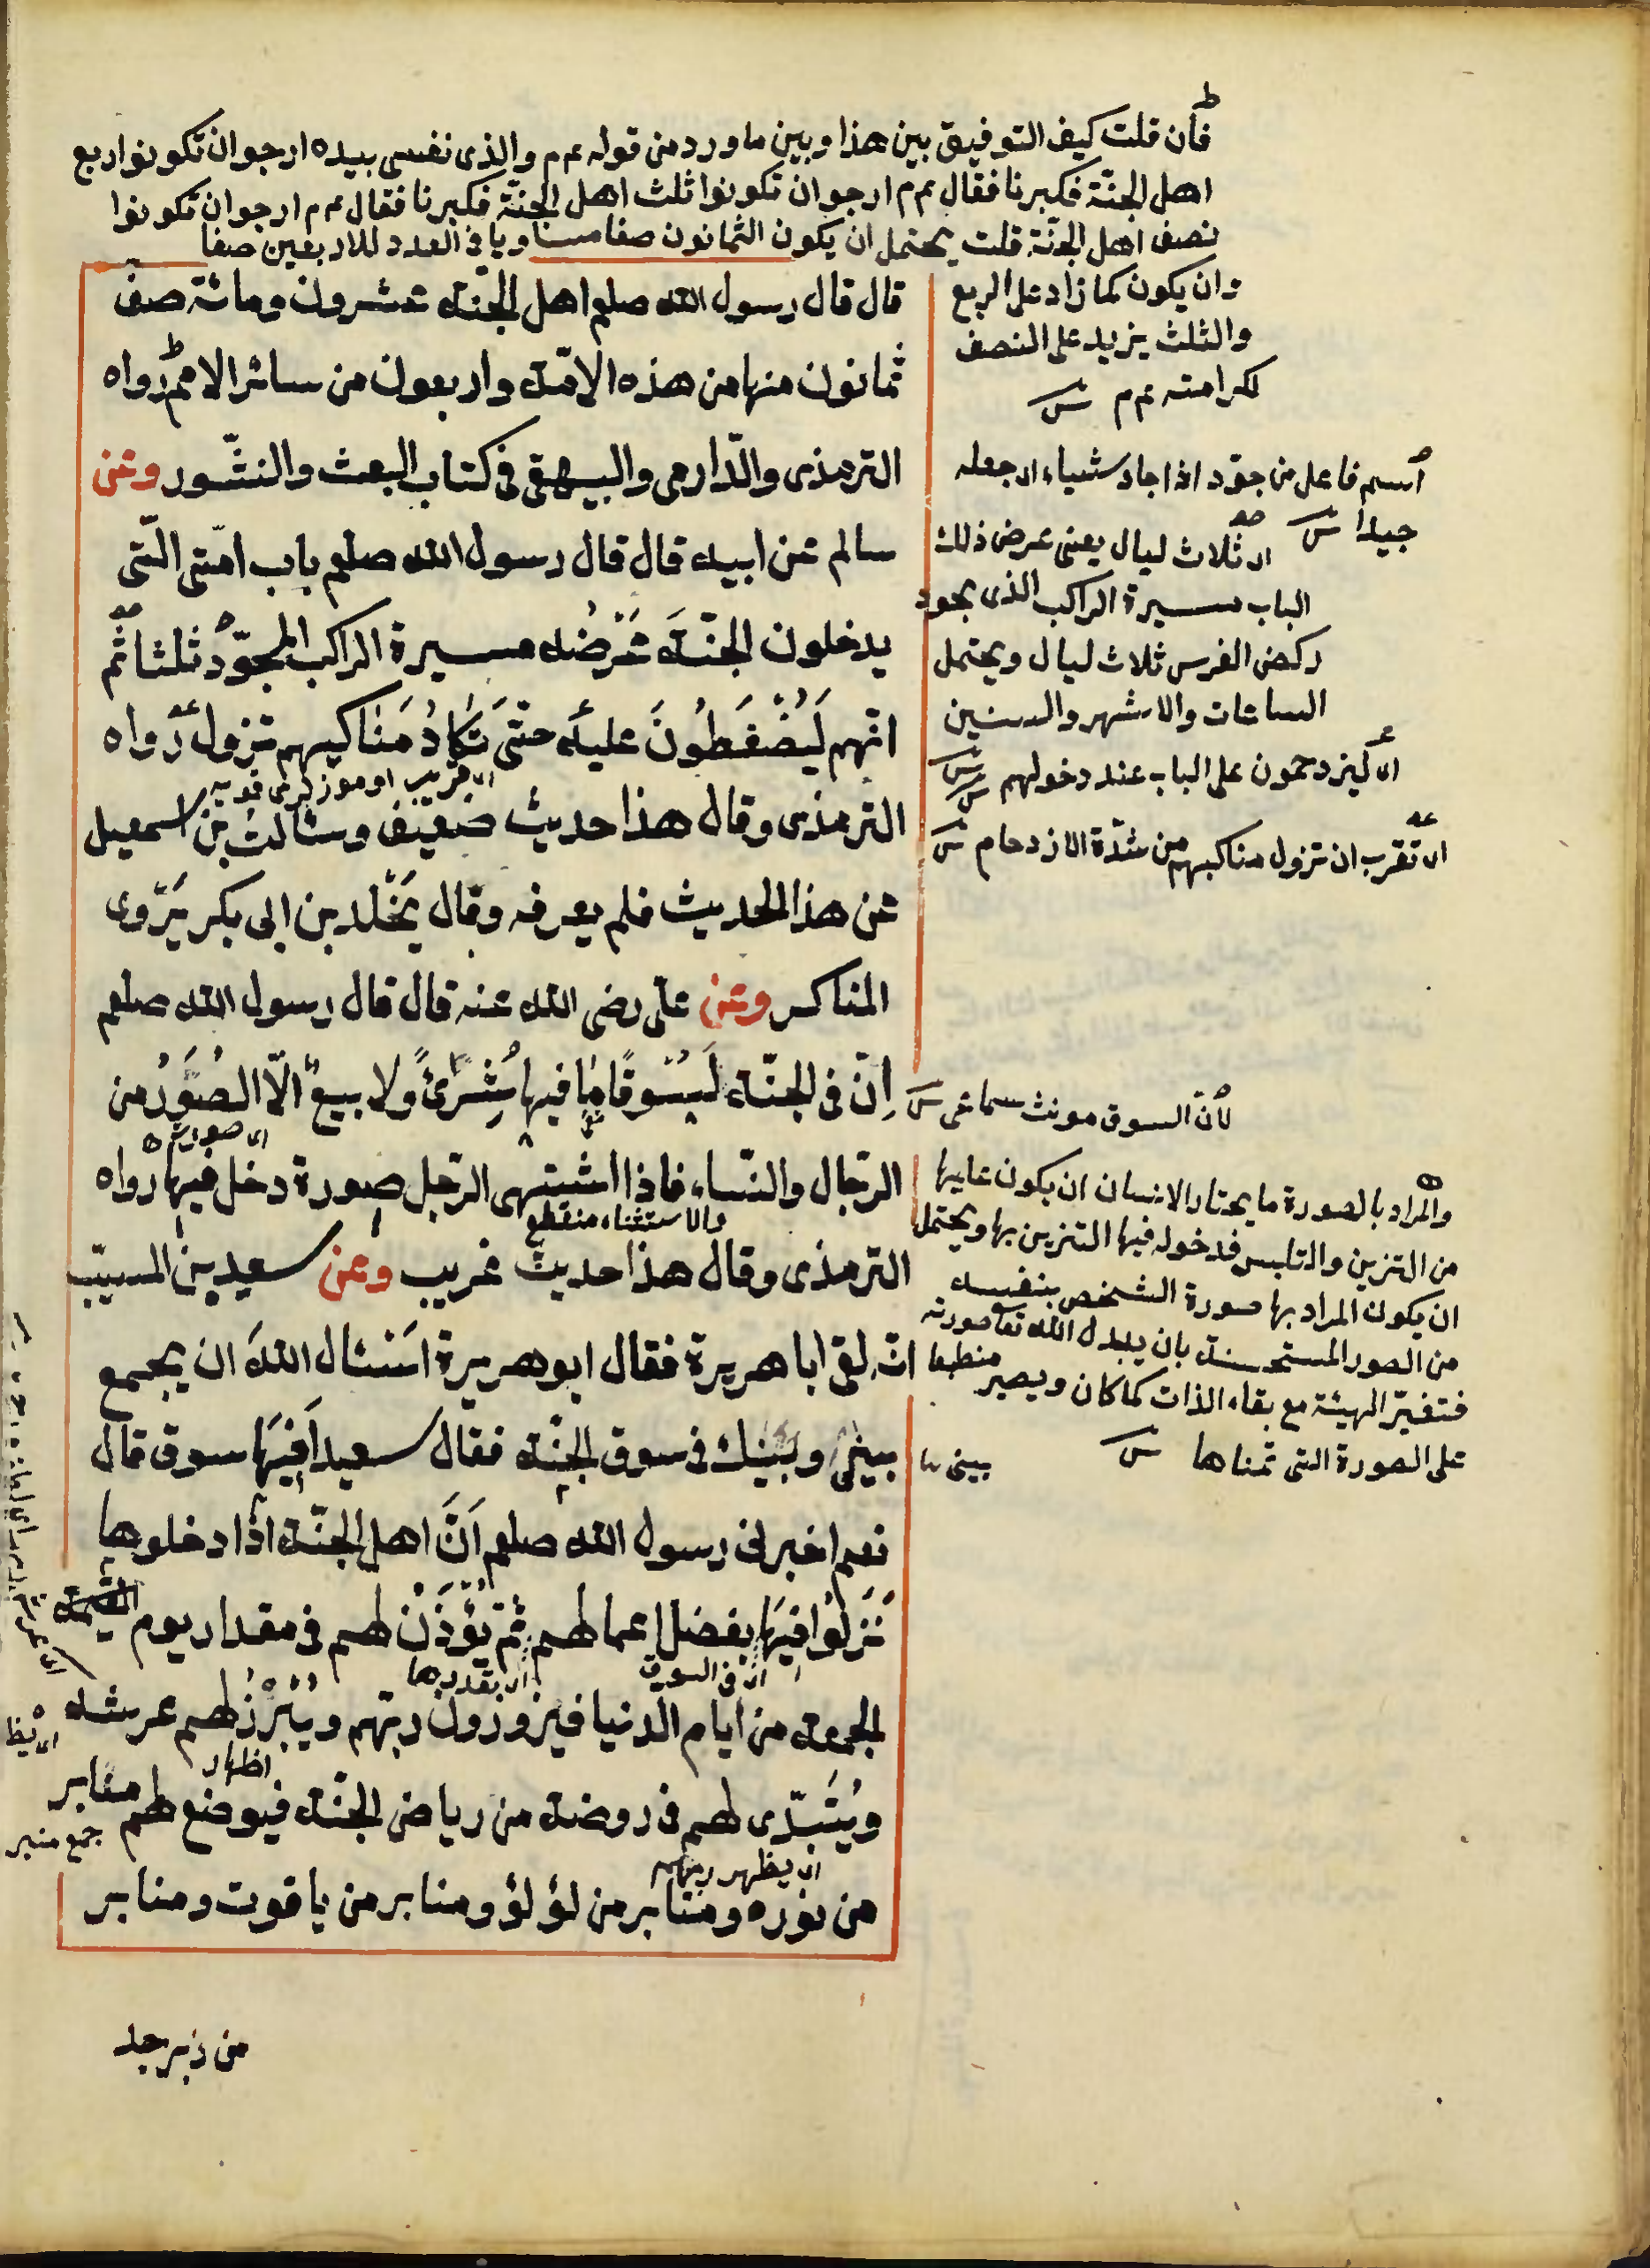 فان قلت كيف التوفيق بين هذا وبين ما ورد من قوله عم م والذى نفسى بيده ارجو ان تكونوا ربع
اهل الجنّة فكبرنا فقال عم م ارجو ان تكونوا ثلث اهل الجنّة فكبرنا فقال عم م ارجو ان تكونوا
نصف اهل الجنّة قلت يحتمل ان يكون الثمانون صفا مساويا فى العدد للاربعين صفا
وان يكون كما زاد على الربع
والثلث يزيد على النصف
لكرامته عم م
قال قال رسول الله صلعم اهل الجنّة عشرون ومائة صفّ
ثمانون منها من هذه الامّة واربعون من سائر الامم رواه
الترمذى والدّارمى والبيهقى فى كتاب البعث والنشّور وعن
سالم عن ابيه قال قال رسول الله صلعم باب امّتى الّتى
يدخلون الجنّةَ عَرْضُه مسيرة الراكب المجوّد ثلثا ثمّ
انّهم لَيُضْغَطُونَ عليه حتّى تَكادُ مَناكبهم تزول رواه
الترمذى وقال هذا حديث ضعيف وسئالت بن اسمعيل
عن هذا الحديث فلم يعرفه وقال يَخْلد بن ابى بكر يَرْوى
المناكر وعن على رضى الله عنه قال قال رسول الله صلعم
اِنّ فى الجنّة لَسُوقًا ما فيها شِرًىً ولا بيعٌ الّا الصُوَرُ من
الرّجال والنّساء فاذا اشتهى الرّجل صورة دخل فيها رواه
الترمذى وقال هذا حديث غريب وعن سعيد بن المسيّب
انّه لقى ابا هريرة فقال ابو هريرة اَسْئال اللهَ ان يجمع
بينى وبينك فى سوق الجنّة فقال سعيد اَفِيها سوق قال
نعم اخبرنى رسول الله صلعم اَنّ اهل الجنّة اذا دخلوها
نَزَلُوا فيها بفضل اعمالهم ثمّ يُؤْذَنُ لهم فى مقدار يوم
الجمعة من ايام الدنيا فيزورون ربّهم ويُبْرَزُ لهم عرشه
ويُتَبَدّى لهم فى روضة من رياض الجنّة فيوضع لهم منابر
من نوره ومنابر من لؤلؤ ومنابر من ياقوت ومنابر
من زبرجد
اسم فاعل من جوّد اذا جاد شياء اى جعله
جيدا
اى ثلاث ليال يعنى عرض ذلك
الباب مسيرة الراكب الذى يجود
ركض الفرس ثلاث ليال ويحتمل
الساعات والاشهر والسنين
اى ليزدحمون على الباب عند دخولهم
اى تقرب ان تزول مناكبهم من شدّة الازدحام
لانّ السوق مونث سماعى
والمراد بالصورة ما يختار الانسان ان يكون عليها
من التزين والتلبس فدخوله فيها التزين بها ويحتمل
ان يكون المراد بها صورة الشخص بنفسه
من الصور المستحسنة بان يبدل الله تعا صورته
فتغيّر الهيئة مع بقاء الذات كما كان ويصير منطبعا
على الصورة التى تمناها
بينى
والاستثناء منقطع
اى فى السوق
اى بقدرها
اظهار
جمع منبر
اى يظهر ربهم